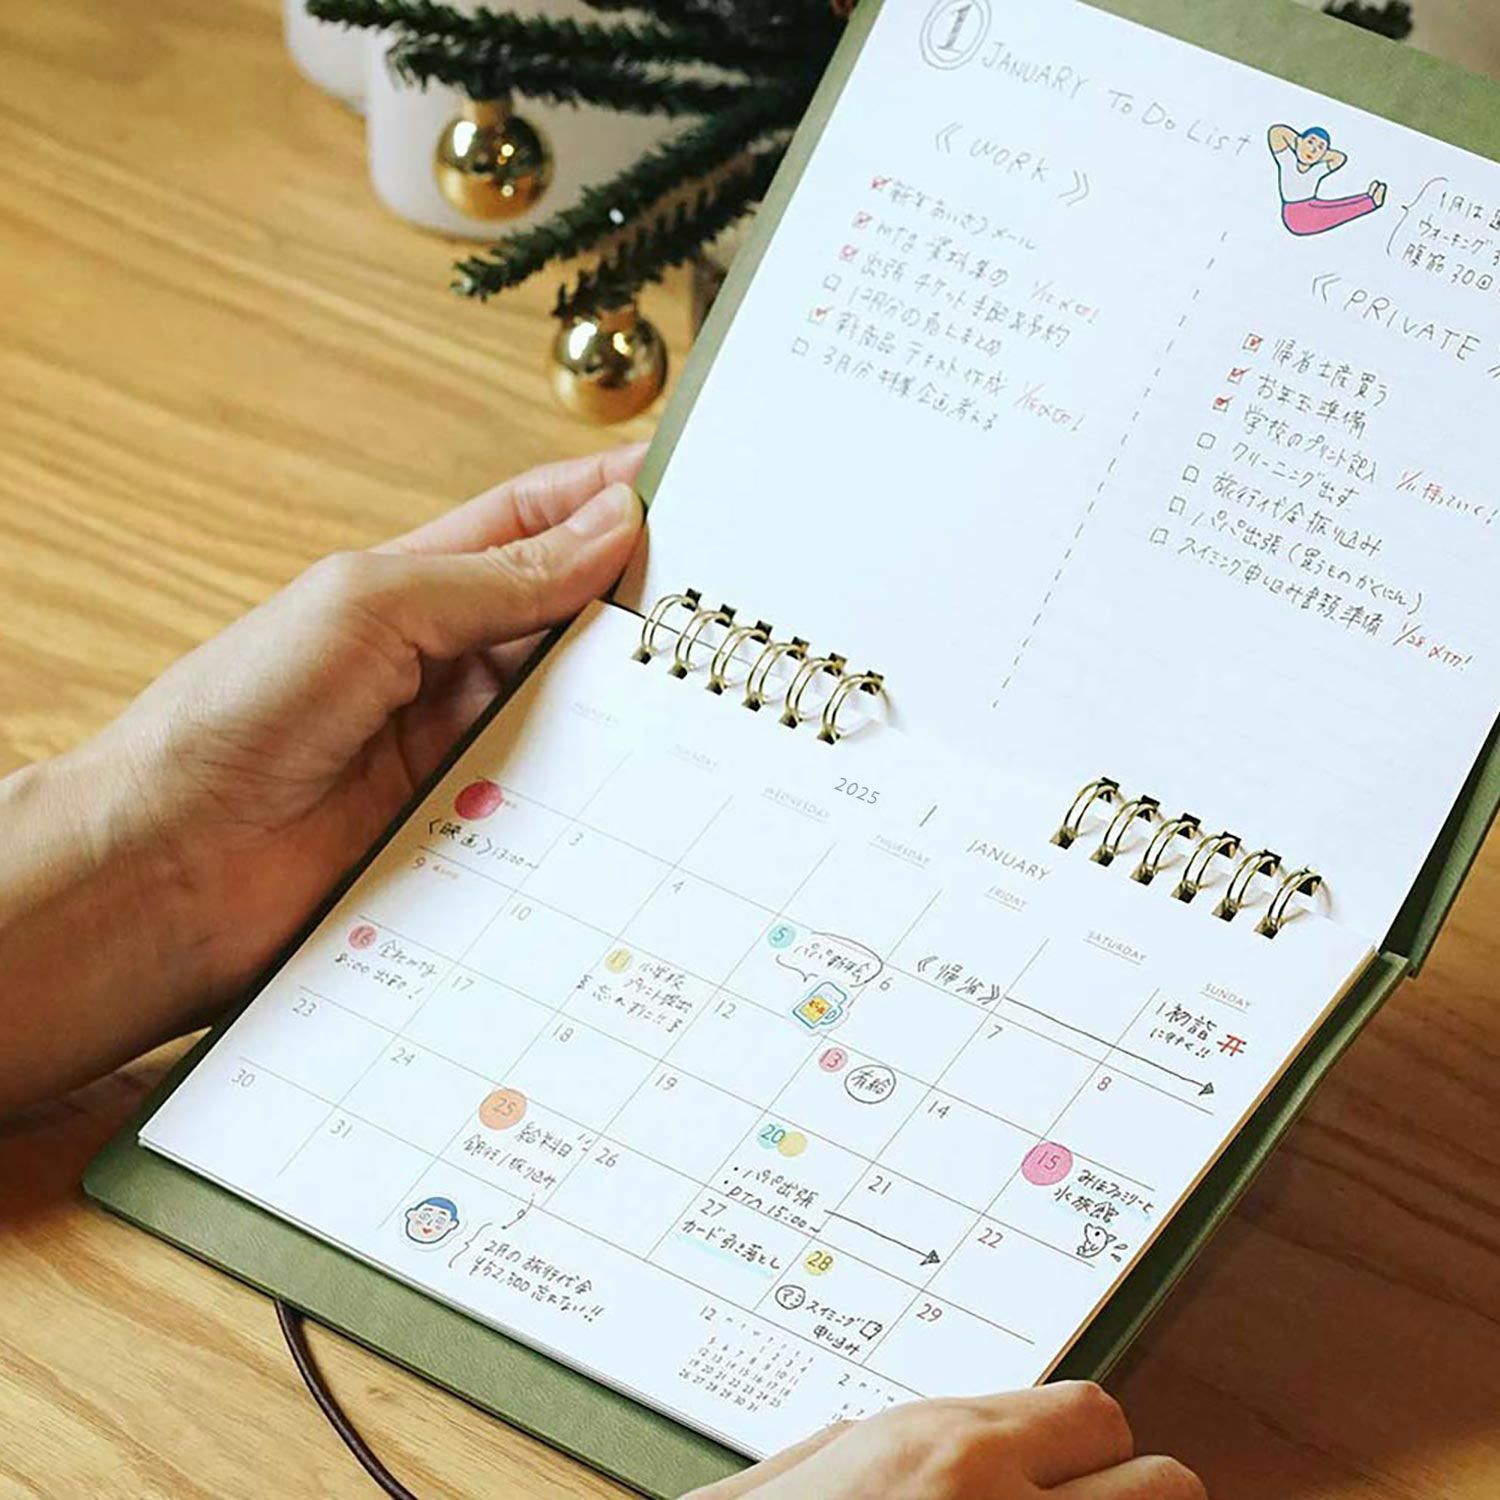 1 JANUARY To Do List
《 WORK 》
新年あいさつメール
mtg 資料集め 1/12 〆切!
出張 チケット手配&予約
12月分の売上まとめ
新商品 テキスト作成 1/15〆切!
3月分 特集企画考える
1月は
ウォーキング
腹筋30回
《 PRIVATE
帰省土産買う
お年玉準備
学校のプリント記入 1/11 持っていく!
クリーニング出す
旅行代金振り込み
パパ出張(買うものかくにん)
スイミング申し込み書類準備 1/28 〆切!
2025
1
JANUARY
MONDAY
TUESDAY
WEDNESDAY
THURSDAY
FRIDAY
SATURDAY
SUNDAY
《帰省》
1 初詣
に行く!!
〈映画〉13:00〜
3
4
5 パパ新年会
6
7
8
9
10
11 小学校
プリント提出
忘れずに!!
12
13 有給
14
15 みほファミリーと
水族館
16 会社mtg
8:00 出発!
17
18
19
20
・パパ出張
・PTA 15:00〜
21
22
23
24
25 給料日
銀行/振り込み
26
27
カード引き落とし
28
スイミング
申し込み
29
30
31
2月の旅行代金
¥52,500 忘れない!!
12
M T W T F S S
1 2 3 4
5 6 7 8 9 10 11
12 13 14 15 16 17 18
19 20 21 22 23 24 25
26 27 28 29 30 31
2
M T W
6 7